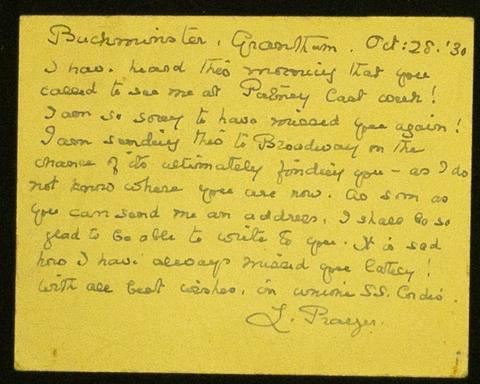 Buckminster, Grantham. Oct: 28. '30
I have heard this morning that you
called to see me at Patney last week!
I am so sorry to have missed you again!
I am sending this to Broadway on the
chance of its ultimately finding you - as I do
not know where you are now. As soon as
you can send me an address, I shall be so
glad to be able to write to you. It is sad
how I have always missed you lately!
With all best wishes, in unione SS. Cordis.
L. Praeger.